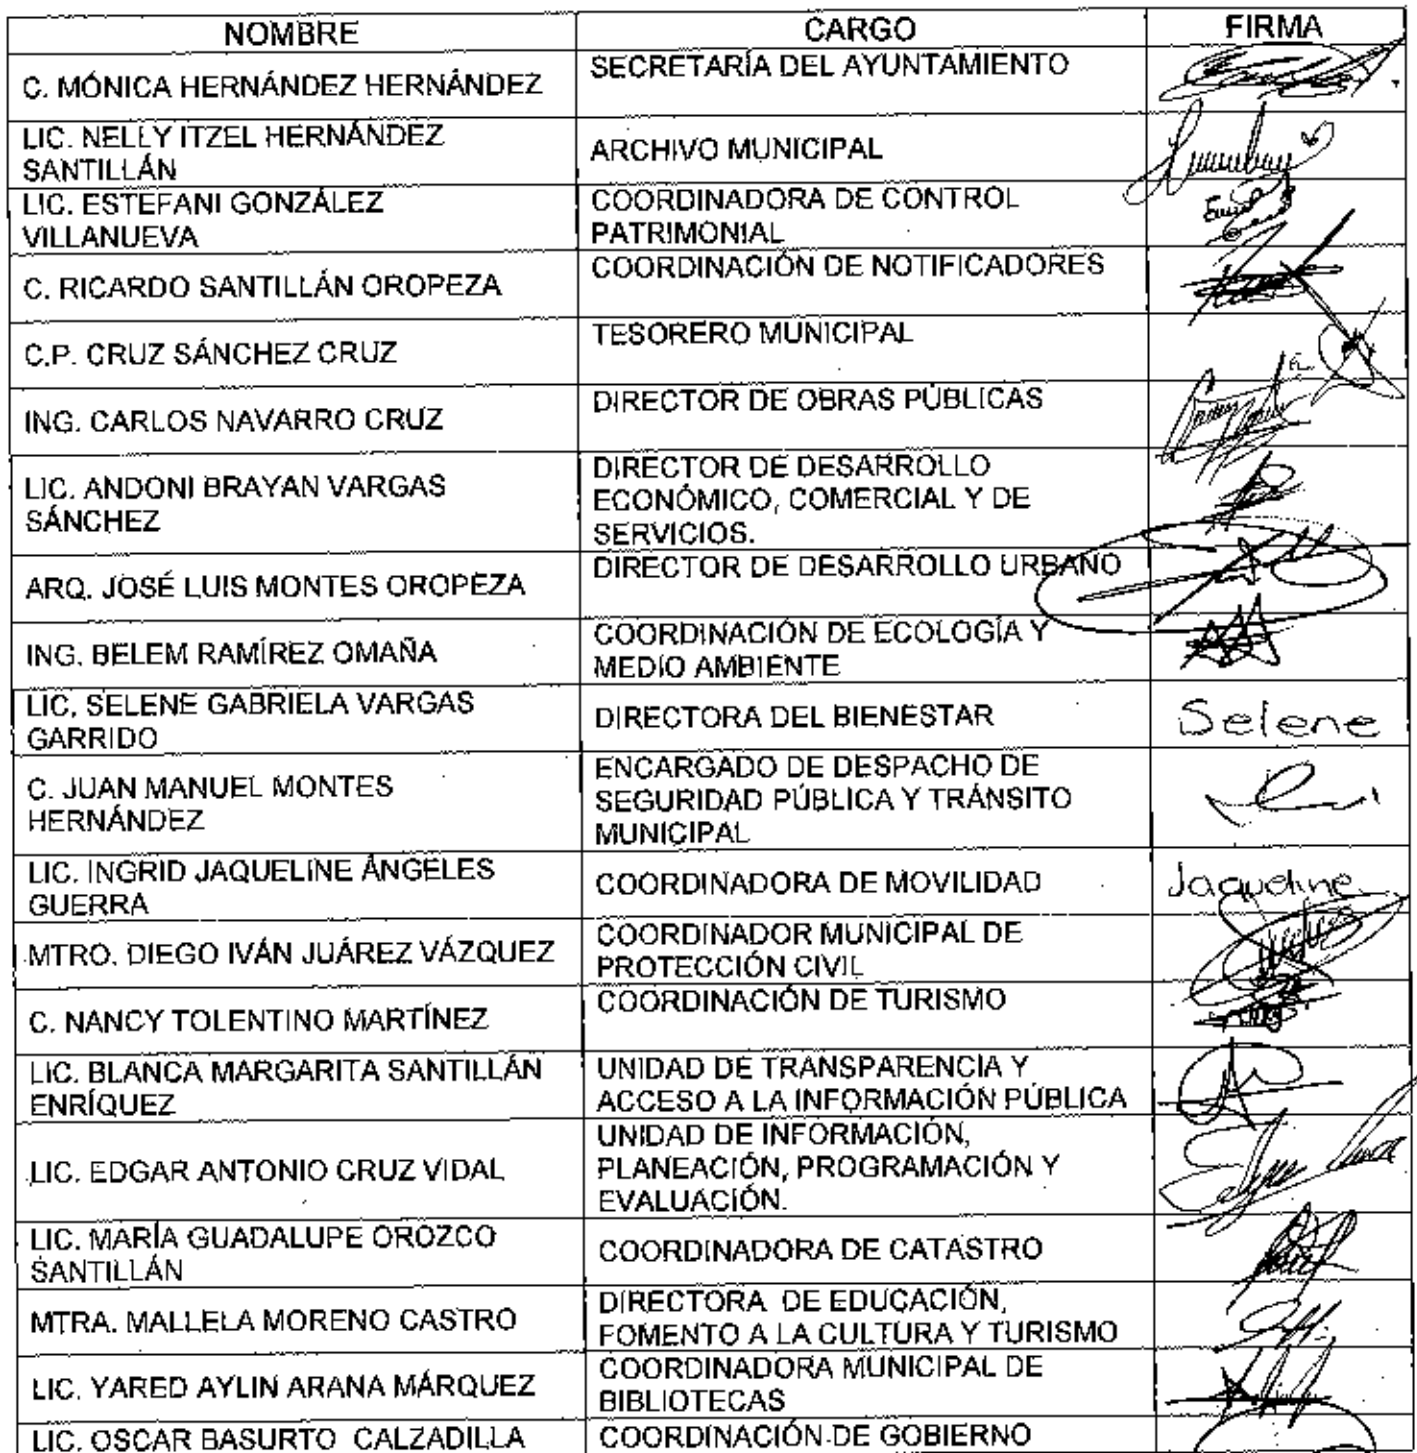 NOMBRE CARGO FIRMA
C. MÓNICA HERNÁNDEZ HERNÁNDEZ SECRETARÍA DEL AYUNTAMIENTO
LIC. NELLY ITZEL HERNÁNDEZ
SANTILLÁN
ARCHIVO MUNICIPAL
LIC. ESTEFANI GONZÁLEZ
VILLANUEVA
COORDINADORA DE CONTROL
PATRIMONIAL
C. RICARDO SANTILLÁN OROPEZA COORDINACIÓN DE NOTIFICADORES
C.P. CRUZ SÁNCHEZ CRUZ TESORERO MUNICIPAL
ING. CARLOS NAVARRO CRUZ DIRECTOR DE OBRAS PÚBLICAS
LIC. ANDONI BRAYAN VARGAS
SÁNCHEZ
DIRECTOR DE DESARROLLO
ECONÓMICO, COMERCIAL Y DE
SERVICIOS.
ARQ. JOSÉ LUIS MONTES OROPEZA DIRECTOR DE DESARROLLO URBANO
ING. BELEM RAMÍREZ OMAÑA
COORDINACIÓN DE ECOLOGÍA Y
MEDIO AMBIENTE
LIC. SELENE GABRIELA VARGAS
GARRIDO
DIRECTORA DEL BIENESTAR
Selene
C. JUAN MANUEL MONTES
HERNÁNDEZ
ENCARGADO DE DESPACHO DE
SEGURIDAD PÚBLICA Y TRÁNSITO
MUNICIPAL
LIC. INGRID JAQUELINE ÁNGELES
GUERRA
COORDINADORA DE MOVILIDAD
Jaqueline
MTRO. DIEGO IVÁN JUÁREZ VÁZQUEZ
COORDINADOR MUNICIPAL DE
PROTECCIÓN CIVIL
C. NANCY TOLENTINO MARTÍNEZ COORDINACIÓN DE TURISMO
LIC. BLANCA MARGARITA SANTILLÁN
ENRÍQUEZ
UNIDAD DE TRANSPARENCIA Y
ACCESO A LA INFORMACIÓN PÚBLICA
LIC. EDGAR ANTONIO CRUZ VIDAL
UNIDAD DE INFORMACIÓN,
PLANEACIÓN, PROGRAMACIÓN Y
EVALUACIÓN.
LIC. MARÍA GUADALUPE OROZCO
SANTILLÁN
COORDINADORA DE CATASTRO
MTRA. MALLELA MORENO CASTRO
DIRECTORA DE EDUCACIÓN,
FOMENTO A LA CULTURA Y TURISMO
LIC. YARED AYLIN ARANA MÁRQUEZ
COORDINADORA MUNICIPAL DE
BIBLIOTECAS
LIC. OSCAR BASURTO CALZADILLA COORDINACIÓN DE GOBIERNO